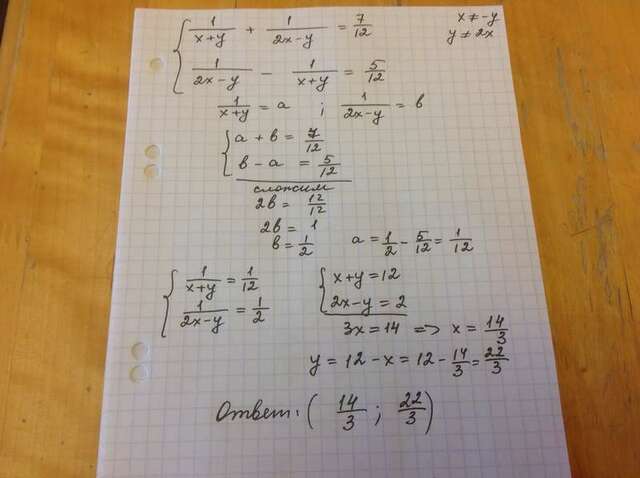 { 1/(x+y) + 1/(2x-y) = 7/12 x ≠ -y
y ≠ 2x
1/(2x-y) - 1/(x+y) = 5/12
1/(x+y) = a ; 1/(2x-y) = b
{ a + b = 7/12
b - a = 5/12
сложим
2b = 12/12
2b = 1
b = 1/2 a = 1/2 - 5/12 = 1/12
{ 1/(x+y) = 1/12 { x+y = 12
1/(2x-y) = 1/2 2x-y = 2
3x = 14 => x = 14/3
y = 12 - x = 12 - 14/3 = 22/3
Ответ: ( 14/3 ; 22/3 )